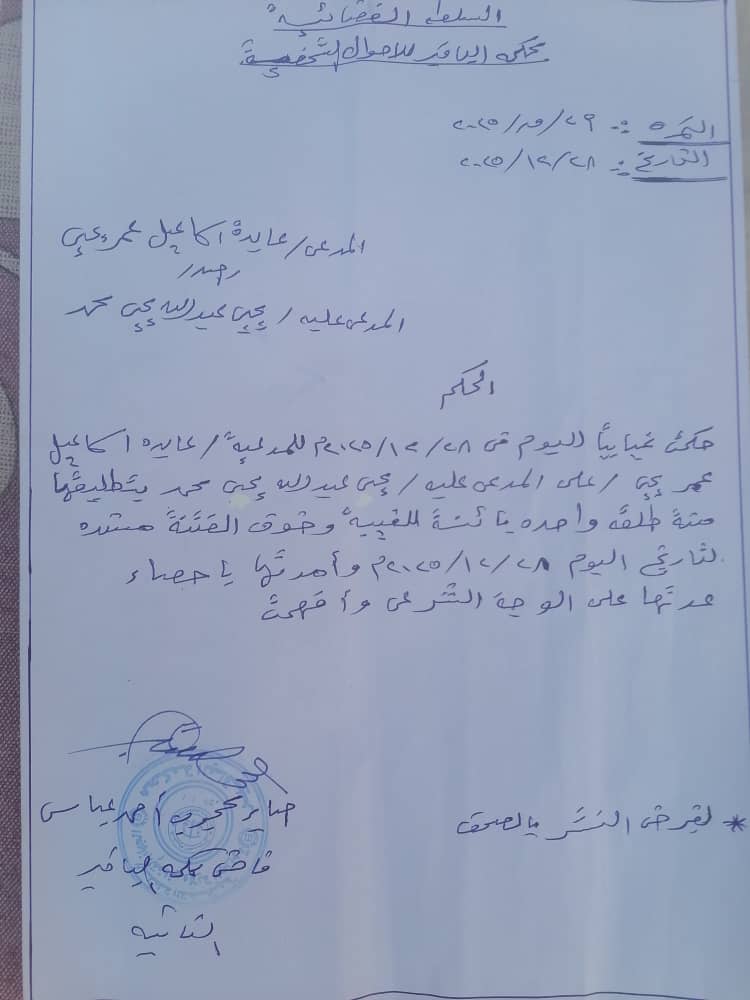 السلطة القضائية
محكمة الباقير للاحوال الشخصية
النمرة :- ٢٩/ /٢٠٢٥
التاريخ :- ٢٨/١٢/٢٠٢٥
المدعى/ عايدة اسماعيل عمر يحي
/ضد/
المدعى عليه / يحي عبدالله يحي محمد
الحكم
حكمت غيابياً اليوم فى ٢٨/١٢/٢٠٢٥م للمدعية / عايده اسماعيل
عمر يحي / على المدعى عليه / يحي عبدالله يحي محمد بتطليقها
منه طلقة واحده بائنة للغيبة وخوف الفتنة مسنده
لتاريخ اليوم ٢٨/١٢/٢٠٢٥م وأمرتها باحصاء
عدتها على الوجه الشرعى وأفهمت
* لغرض النشر بالصحف
أحمد عباس
قاضى محكمة الباقير
الثانيه